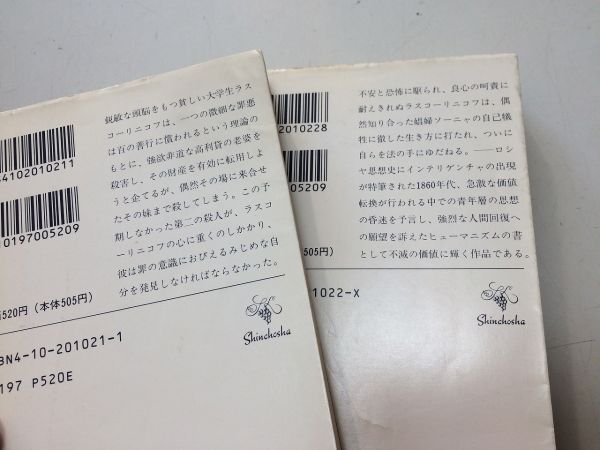 鋭敏な頭脳をもつ貧しい大学生ラス
コーリニコフは、一つの微細な罪悪
は百の善行に償われるという理論の
もとに、強欲非道な高利貸の老婆を
殺害し、その財産を有効に転用しよ
うと企てるが、偶然その場に来合せ
たその妹まで殺してしまう。この予
期しなかった第二の殺人が、ラスコ
ーリニコフの心に重くのしかかり、
彼は罪の意識におびえるみじめな自
分を発見しなければならなかった。
4102010211
0197005209
520円（本体505円）
BN4-10-201021-1
197 P520E
Shinchosha
不安と恐怖に駆られ、良心の呵責に
耐えきれぬラスコーリニコフは、偶
然知り合った娼婦ソーニャの自己犠
牲に徹した生き方に打たれ、ついに
自らを法の手にゆだねる。――ロシ
ヤ思想史にインテリゲンチャの出現
が特筆された1860年代、急激な価値
転換が行われる中での青年層の思想
の昏迷を予言し、強烈な人間回復へ
の願望を訴えたヒューマニズムの書
として不滅の価値に輝く作品である。
02010228
05209
505円）
1022-X
Shinchosha